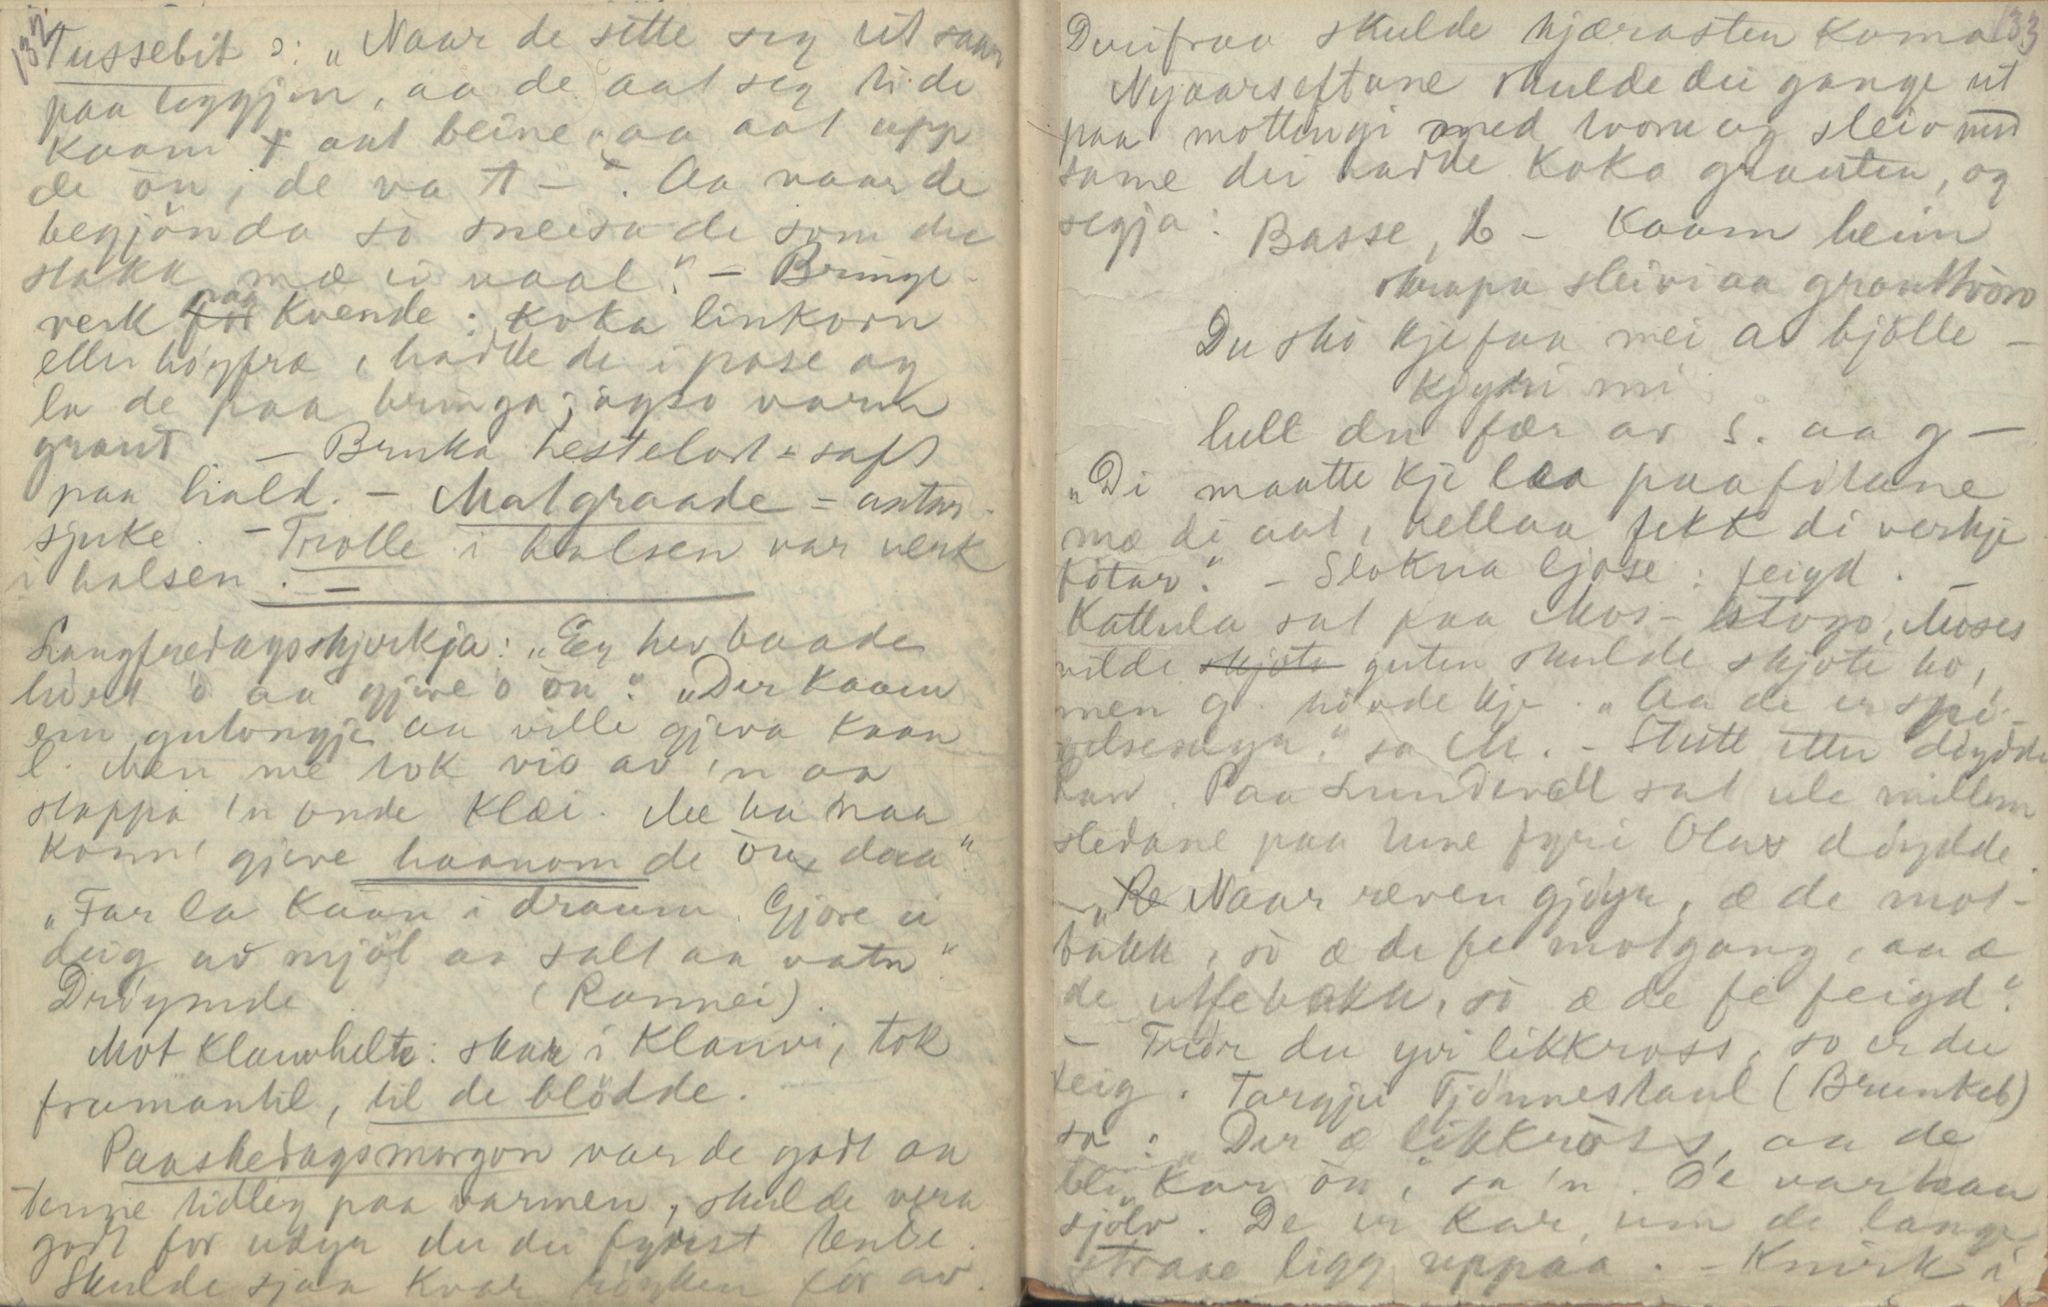 132
Tussebit ɔ: „Naar de sette seg eit saar
paa leggjen, aa de aat seg ti de
kaam t aat beine, aa aat upp
de òn, de va t –". Aa naar de
begjönda so sneisa de som dei
stakk mæ ein naal." – Bringe-
verk for paa kvende: koka linkorn
eller höyfrø, hadde de i pose og
la de paa bringa; ògso varm
graut – Bruka hestelort = saft
paa hald. – Matgraade = aatter-
sjuke. – Trolle i halsen var verk
i halsen. –
Langfredagsskjerkja: „Eg hev baade
höirt o aa gjeve o òn." „Der kaam
ein gutongje aa ville gjeva kaan
l. Men me tok vio av 'n aa
stappa 'n onde klæi. Me ha naa
konn' gjeve haanom de òn, daa"
„Far la kaan i draum. Gjore ei
deig av mjöl aa salt aa vatn".
Dröymde (Ronnei).
Mot klauvhelte: skar i klauvi, tok
framantil, til de blödde.
Paaskedagsmorgon var de godt aa
tenne tidleg paa varmen, skulde vera
godt for udyr der dei fyrst tende.
Skulde sjaa kvar röyken for av.
133
Derifraa skulde kjærasten koma
Nyaarseftane skulde dei gange ut
paa mottingi med tvoru og sleiv med
same dei hadde koka grauten, og
segja: Basse, b – kaam heim
skrapa sleivi aa grauttvoro
Du sko kje faa mei av bjölle –
kjyri mi
hell den fær av s. aa g –
„Di maatte kje læa paa fötane
mæ di aat, hellaa fekk di verkje
fötar." – Slokna ljose: feigd. –
Kattula sat paa Mos-stogo, Moses
vilde skjota guten skulde skjote ho,
men g. hövde kje. „Aa de er spö-
elsesdyr." sa M. – Stutt etter döydde
han. Paa Lundevall sat ule millom
sledane paa tune fyri Olav döydde.
– „Re Naar reven gjöyr, æ de mot-
bakk, so æ de fe motgang, aa æ
de utfebakk, so æ de fe feigd".
– Trör du yvi likkross, so er du
feig. Targjei Tjönnestaul (Brunkeb)
sa: „Der æ likkross, aa de
bli kar òn", sa 'n. De var han
sjölv. De er kar, um de lange
straae ligg uppaa. – Knirk i